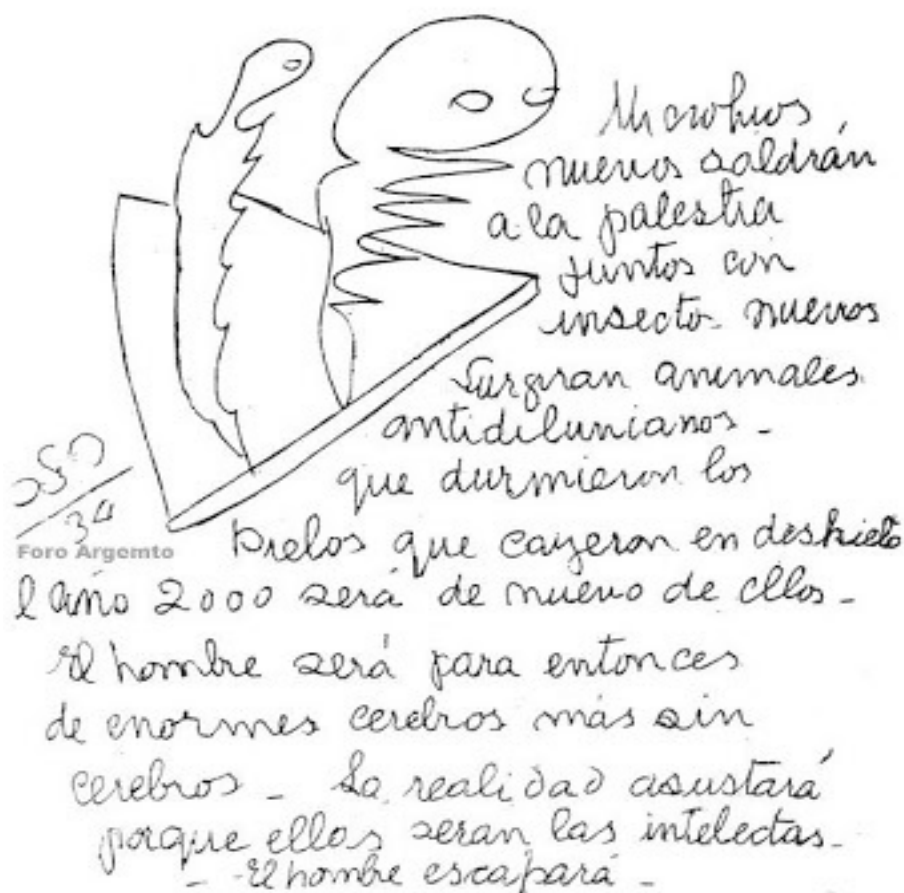 Microbios
nuevos saldrán
a la palestra
Juntos con
insecto nuevos
Surgiran animales
antidilunianos -
que durmieron los
hielos que cayeron en deshielo
l año 2000 será de nuevo de ellos -
El hombre será para entonces
de enormes cerebros más sin
cerebros - La realidad asustará
porque ellos seran las intelectas -
- El hombre escapará -
34
Foro Argemto